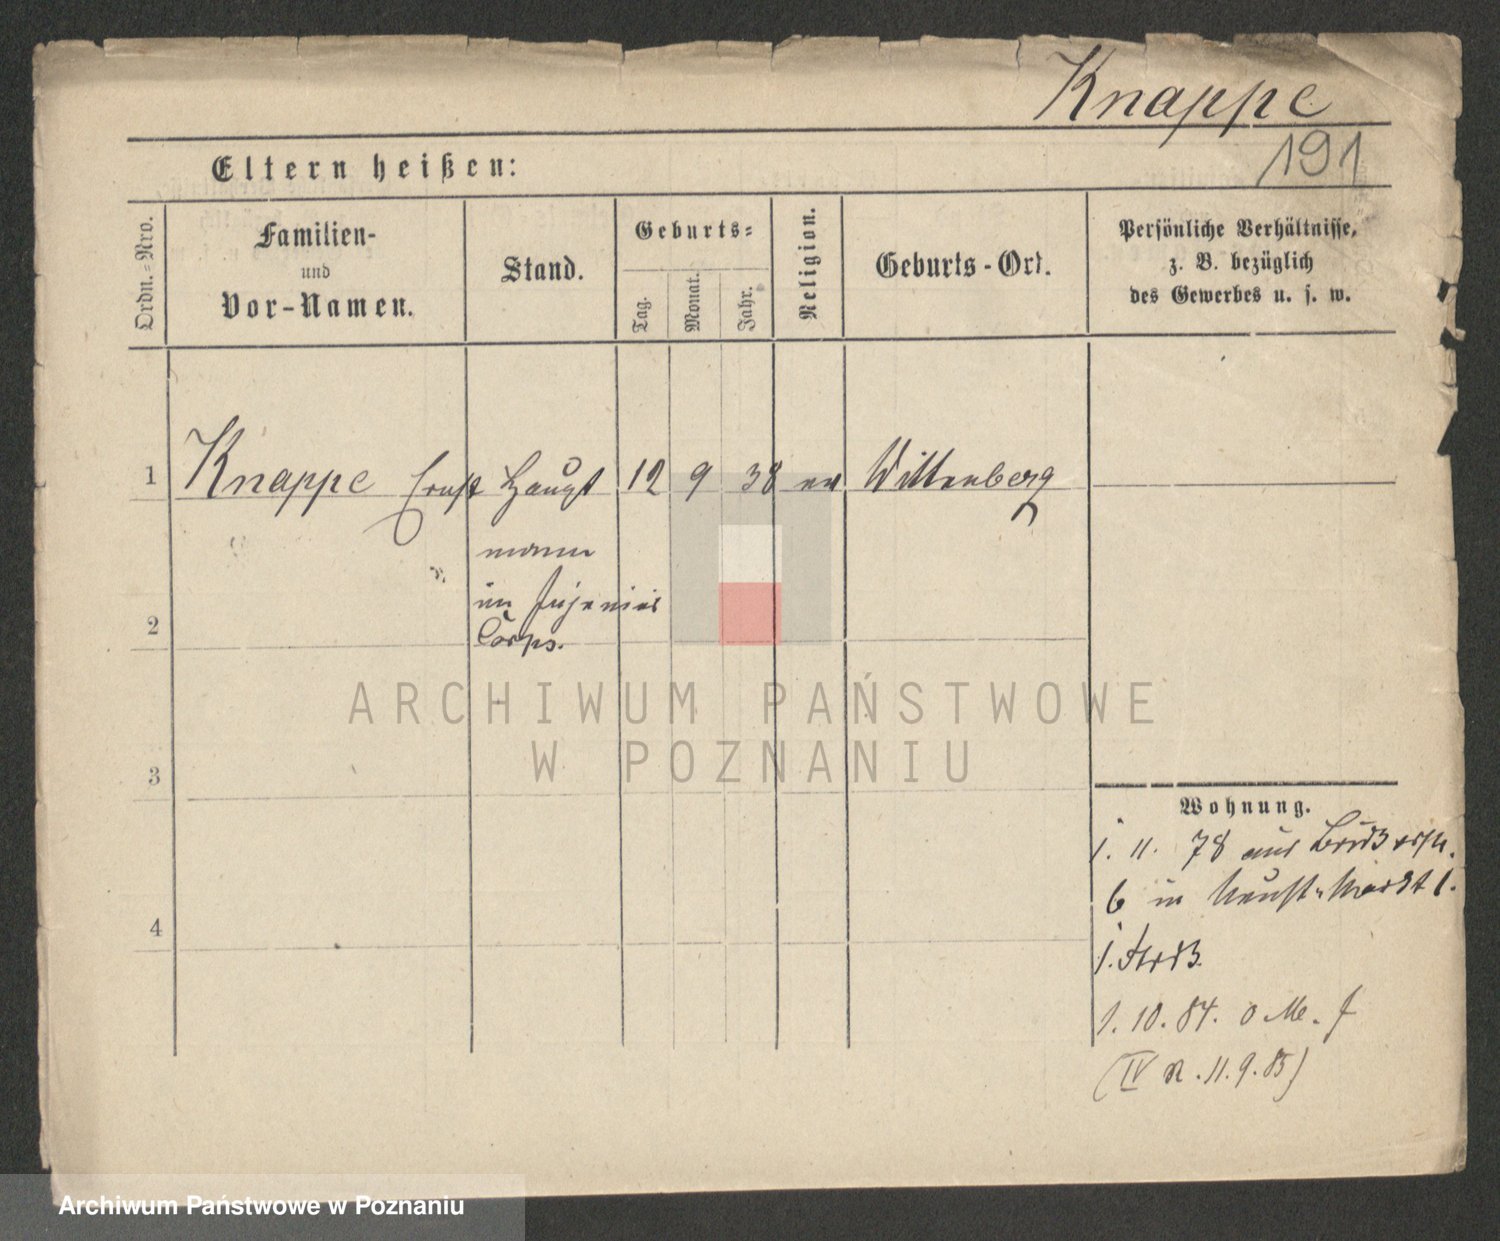 Knappe
191
Eltern heißen:
Ordn.=Nro.
Familien-
und
Vor-Namen.
Stand.
Geburts=
Tag.
Monat.
Jahr.
Religion.
Geburts-Ort.
Persönliche Verhältnisse,
z. B. bezüglich
des Gewerbes u. s. w.
1
Knappe Ernst Haupt 12 9 38 ev Wittenberg
mann
im Ingenieur
Corps.
2
3
4
ARCHIWUM PAŃSTWOWE
W POZNANIU
Wohnung.
1. 11. 78 aus
6 in Neust. Markt 1.
1.
1. 10. 84. o M. f
(IV R. 11. 9. 85)
Archiwum Państwowe w Poznaniu